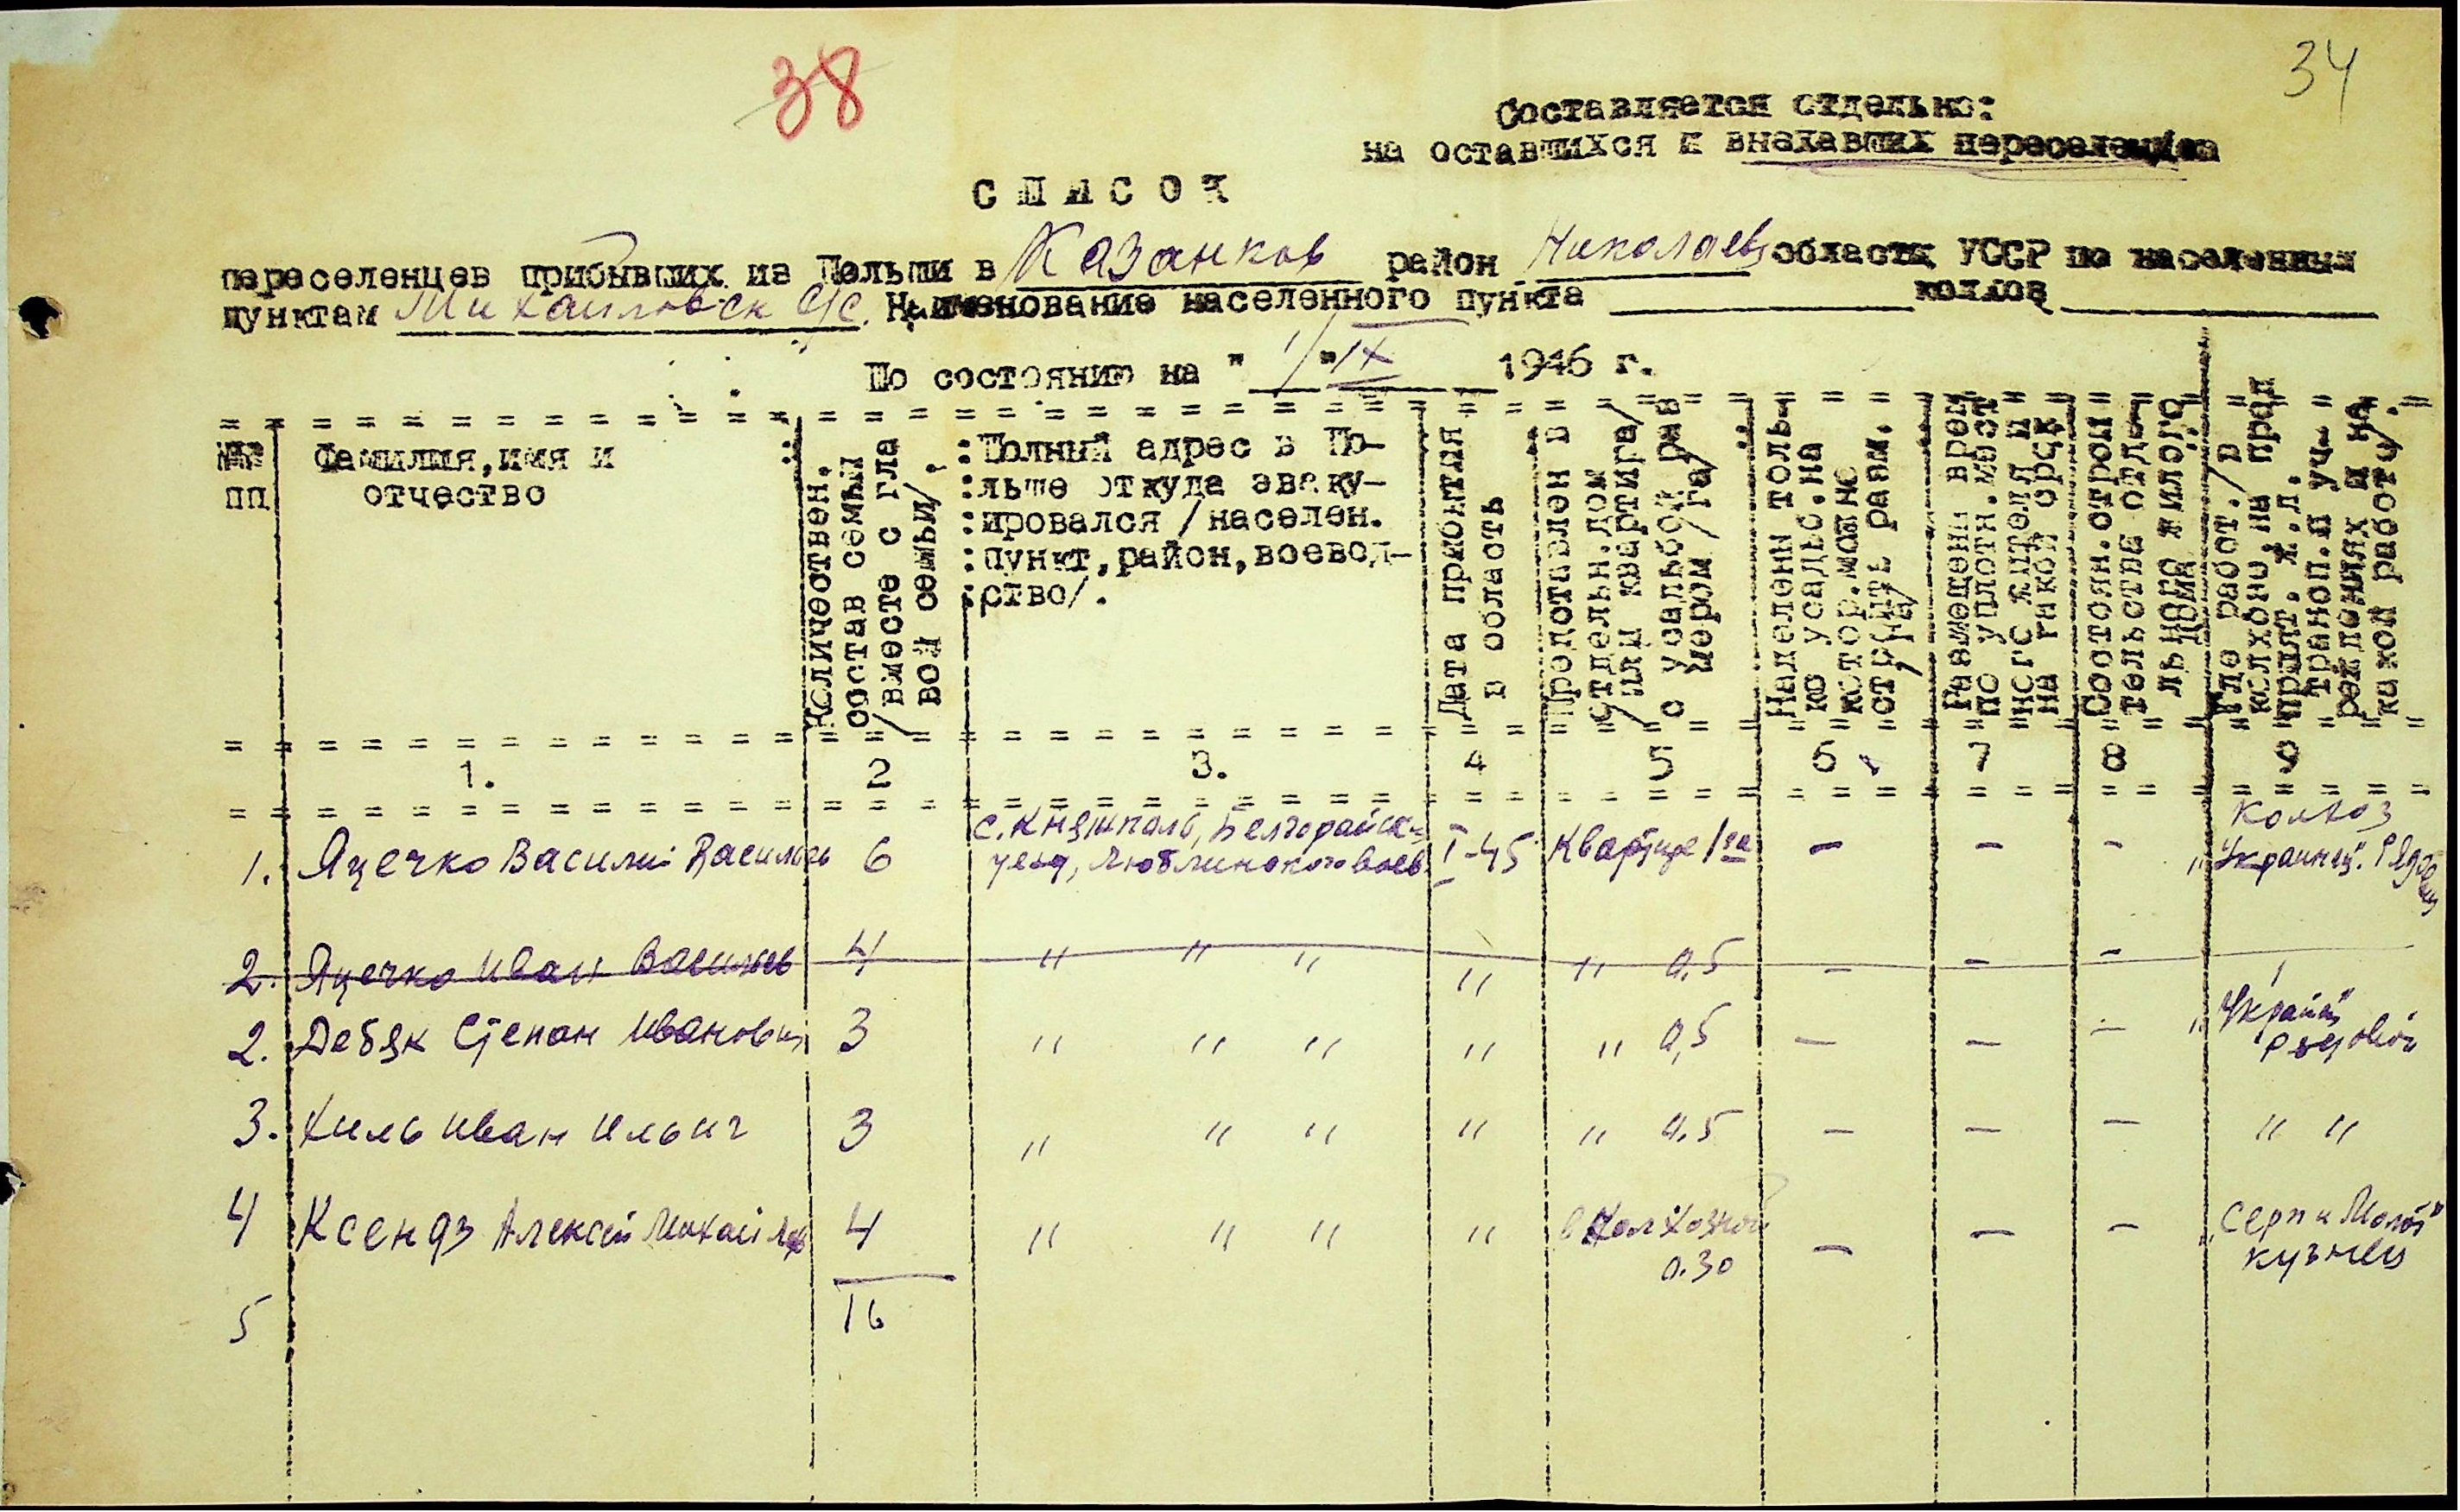 38
34
Составляется отдельно:
на оставшихся и внехавших переселенцев
СПИСОК
переселенцев прибывших из Польши в Казанков район Николаевс области УССР по населенным
пунктам Михайловск с/с. Наименование населенного пункта колхоз
По состоянию на "1/"IX 1946 г.
№№ пп
Фамилия, имя и отчество
Количествен. состав семьи /вместе с гла вой семьи/.
Полный адрес в По-
льше откуда эваку-
ировался /населен.
пункт, район, воевод-
ство/.
Дата прибытия в область
Предоставлен в отдельн.дом /или квартира/ с усадьбой раз мером /га/
Наделены толь- ко усадьб.на котор.можно строить разм. /га/
Размещены врем по уплотн.мест ного жителя и на такой срок
Состоян.строи тельства отде льного жилого дома
Где работ./в колхозе, на пред прият. ж.д. трансп.в уч- реждениях и на какой работе/.
1. 2 3. 4 5 6 7 8 9
1. Яцечко Василий Василь 6 с. Княжполь, Белгорайск уезд, Люблинского воев I-45 Квартире 1 га — — — колхоз "Украинец". Рядовой
2. Яцечко Иван Васильев 4 " " " " " 0.5 — — —
2. Дебяк Степан Иванович 3 " " " " " 0,5 — — — "Украин" рядовой
3. Хиль Иван Ильич 3 " " " " " 0.5 — — — " "
4 Ксендз Алексей Михайлов 4 " " " " в Колхозной 0.30 — — — "Серп и Молот" кузнец
16
5